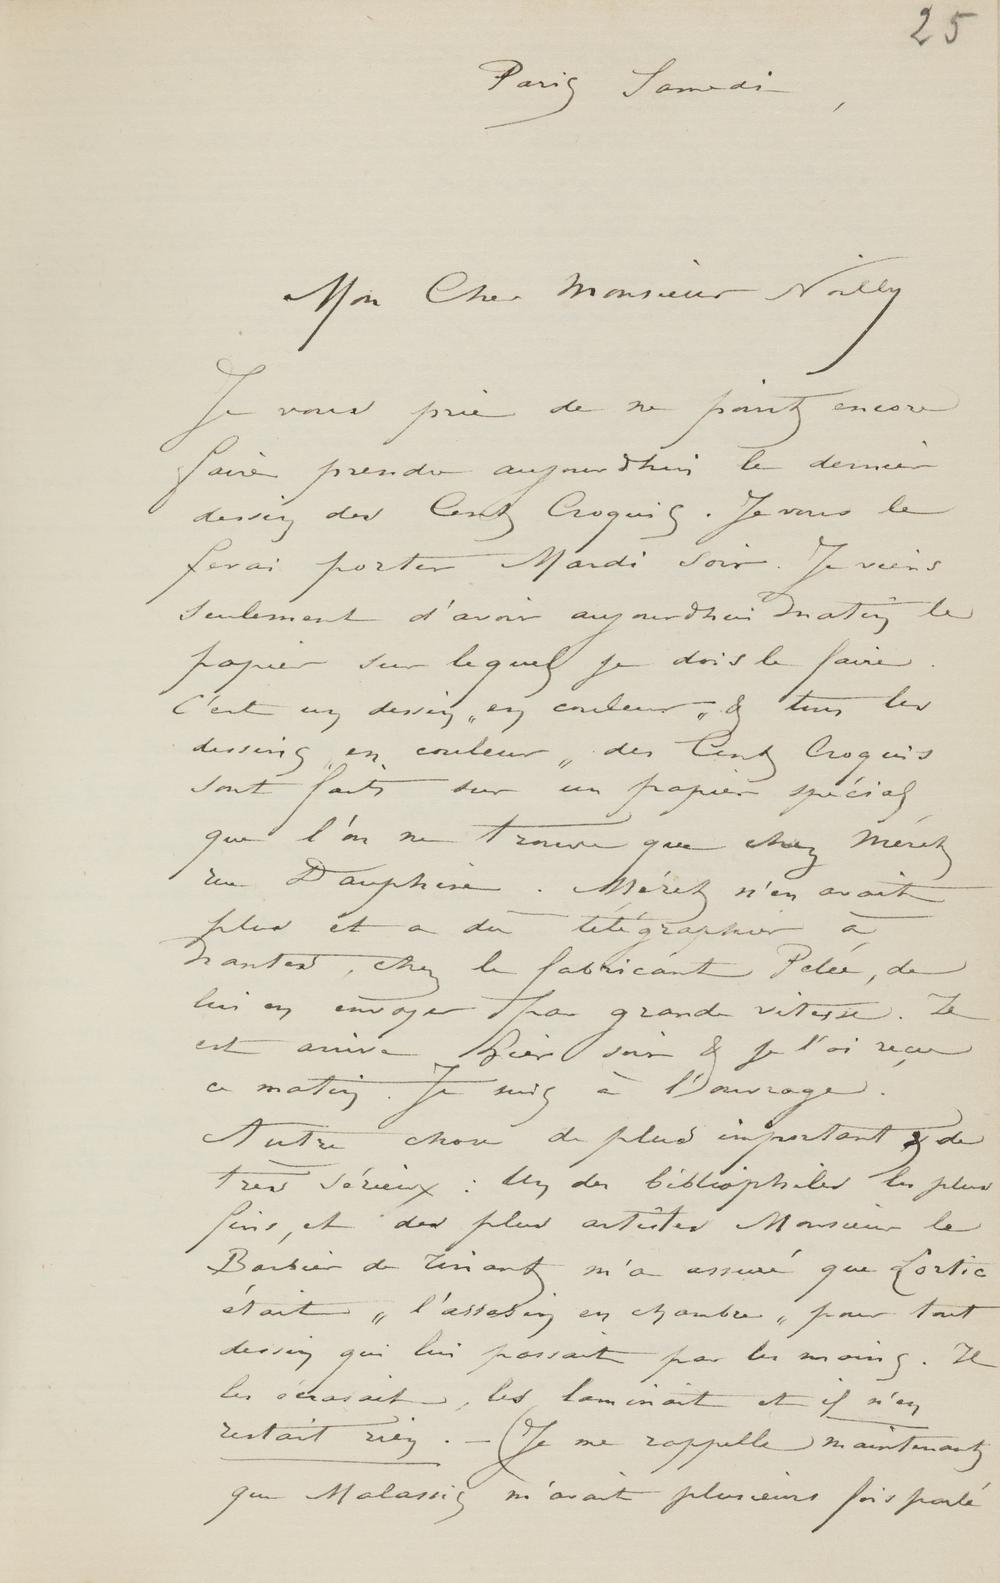 25
Paris Samedi,
Mon Cher Monsieur Noilly
Je vous prie de ne point encore
faire prendre aujourdhui le dernier
dessin des Cent Croquis. Je vous le
ferai porter Mardi soir. Je viens
seulement d'avoir aujourdhui matin le
papier sur lequel je dois le faire.
C'est un dessin „en couleur„ & tous les
dessins „en couleur„ des Cent Croquis
sont faits sur un papier spécial
que l'on ne trouve que chez Méret
rue Dauphine. Méret n'en avait
plus et a du télégraphier à
Nantes, chez le fabricant Pelée, de
lui en envoyer par grande vitesse. Il
est arrivé hier soir & je l'ai reçu
ce matin. Je suis à l'ouvrage.
Autre chose de plus important & de
très sérieux : Un des bibliophiles les plus
fins, et des plus artistes Monsieur le
Barbier de Tinant m'a assuré que Lortic
était „l'assassin en chambre„ pour tout
dessin qui lui passait par les mains. Il
les écrasait, les laminait et il n'en
restait rien. – (Je me rappelle maintenant
que Malassis m'avait plusieurs fois parlé